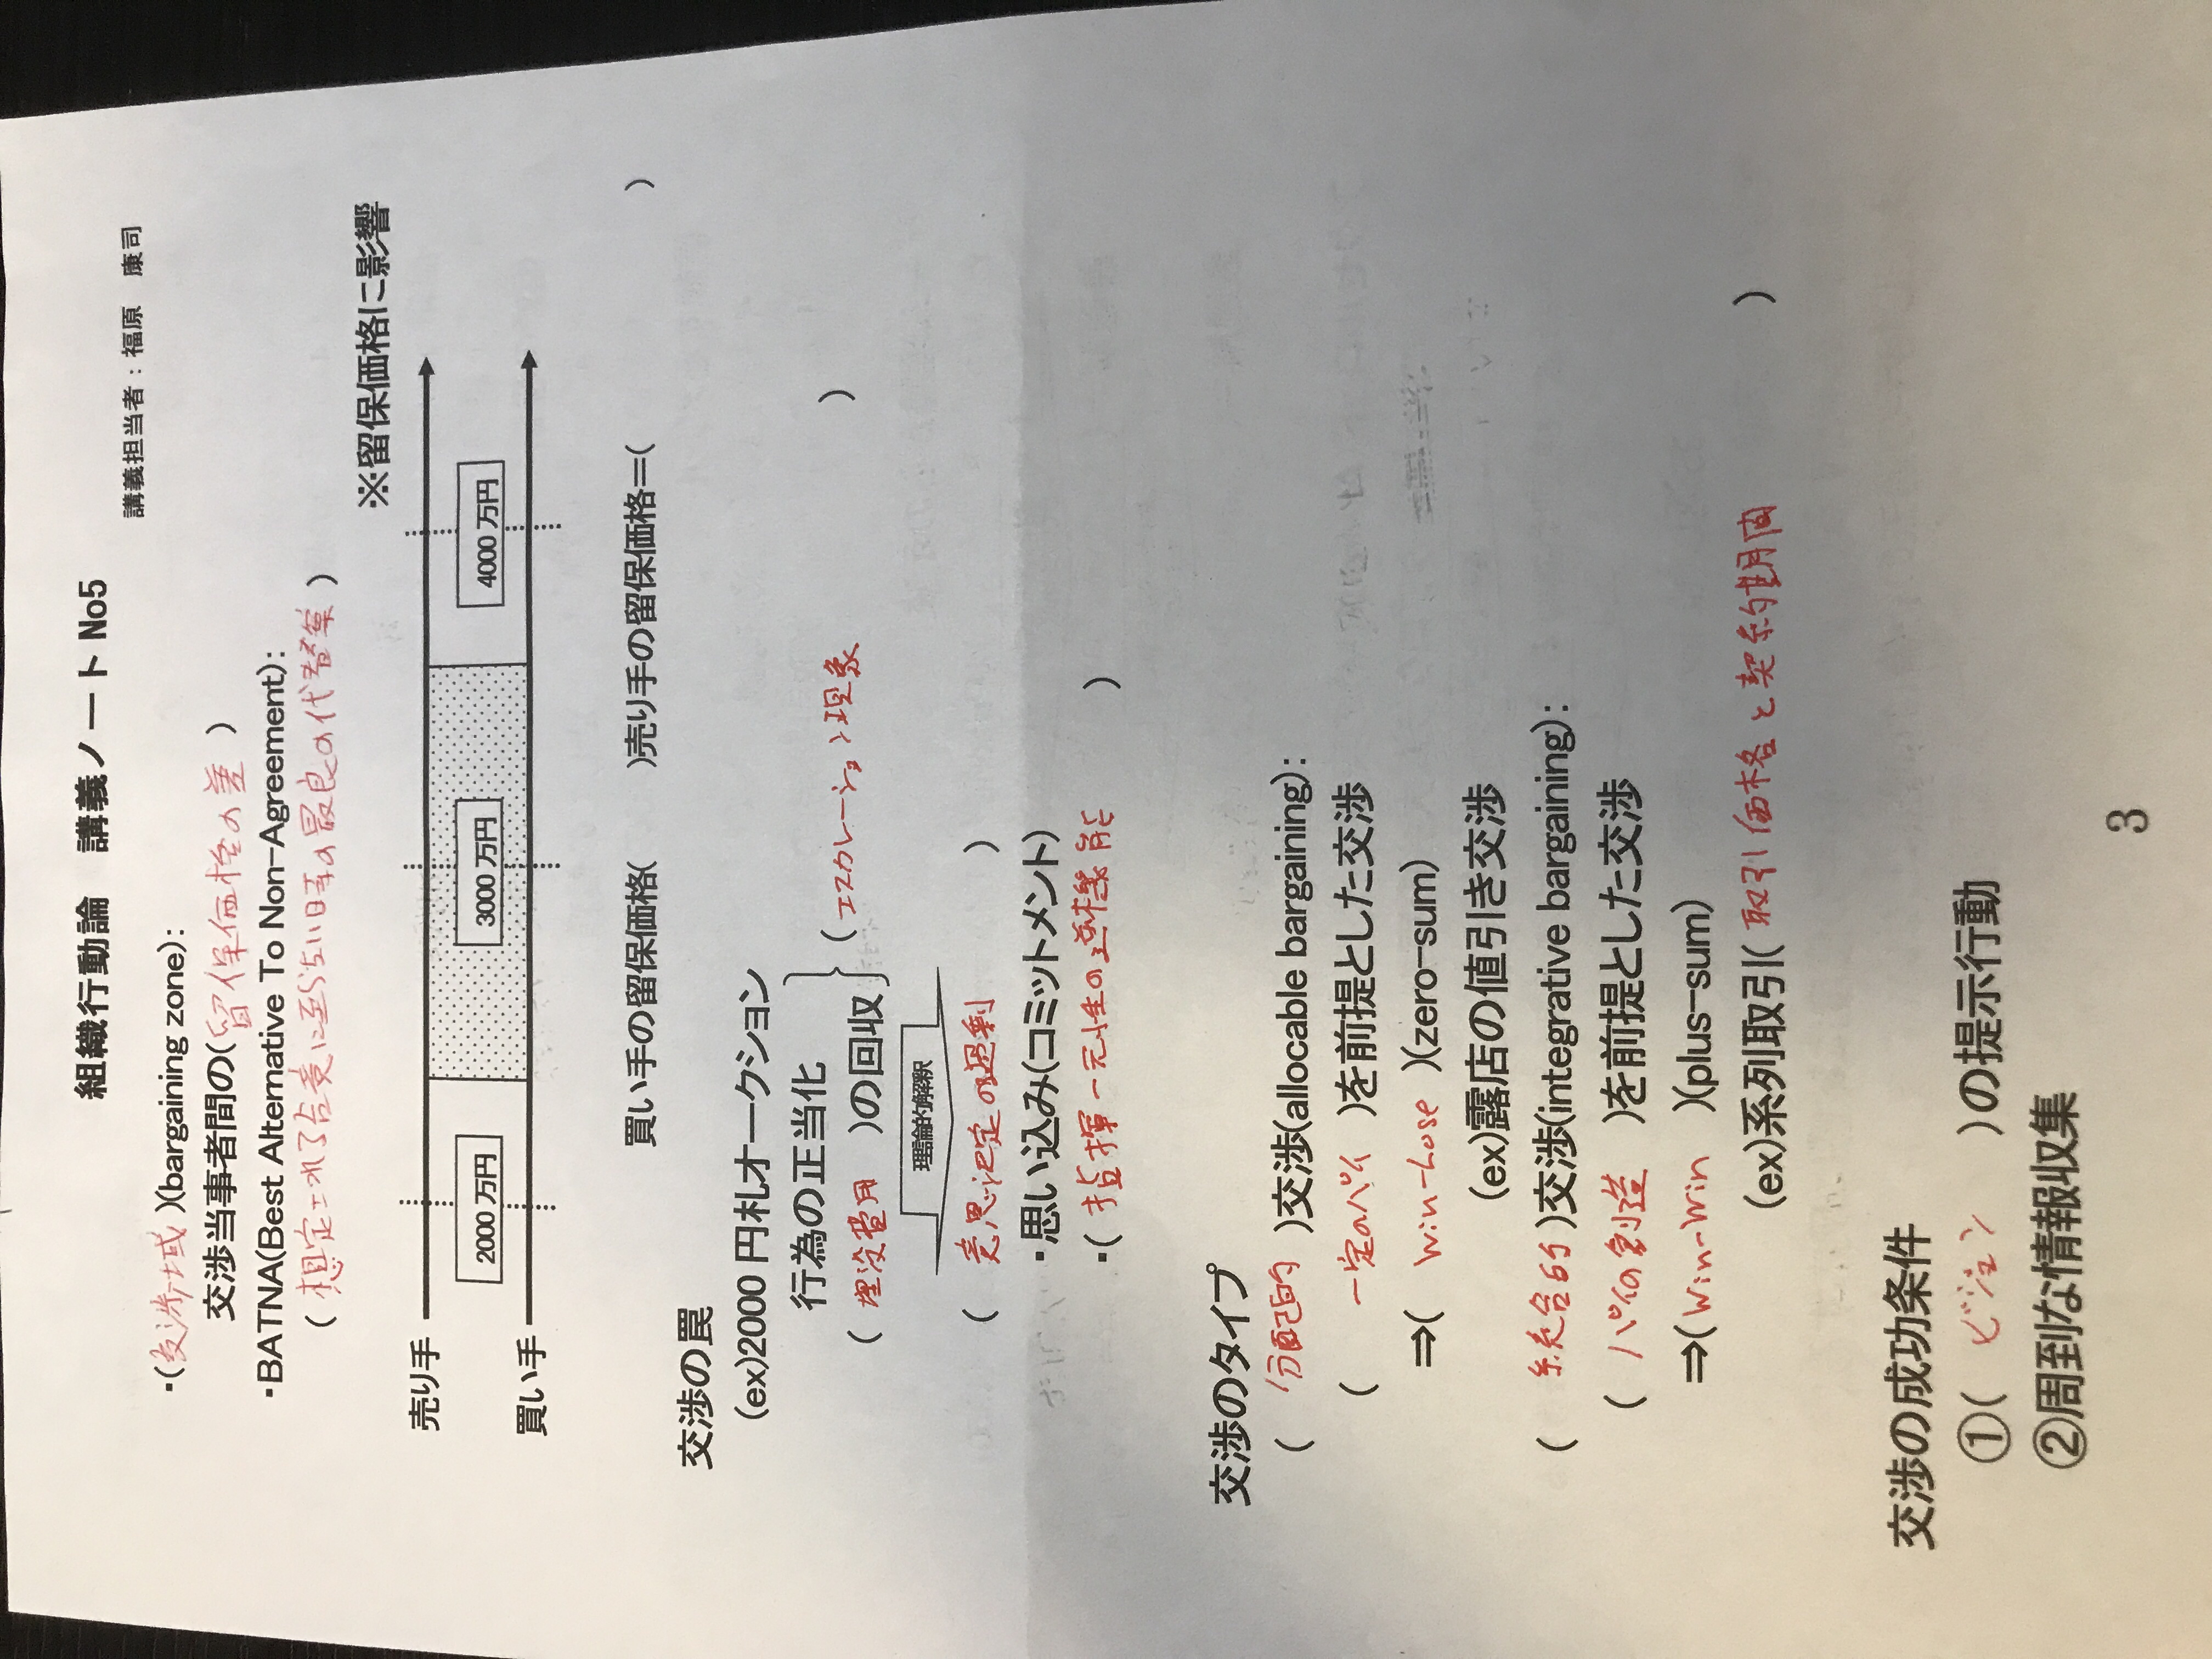 組織行動論　講義ノート No5
講義担当者：福原　康司
・(交渉域)(bargaining zone):
交渉当事者間の(留保価格の差)
・BATNA(Best Alternative To Non-Agreement):
(想定される合意に至らない時の最良の代替案)
※留保価格に影響
売り手
2000 万円 3000 万円 4000 万円
買い手
買い手の留保価格(　　)売り手の留保価格＝(　　　　　)
交渉の罠
(ex)2000 円札オークション
行為の正当化
(埋没費用)の回収
(エスカレーション現象)
理論的解釈
(意思決定の過剰)
・思い込み(コミットメント)
・(指揮一元性の逆機能)
交渉のタイプ
(分配的)交渉(allocable bargaining):
(一定のパイ)を前提とした交渉
⇒(Win-Lose)(zero-sum)
(ex)露店の値引き交渉
(統合的)交渉(integrative bargaining):
(パイの創造)を前提とした交渉
⇒(Win-Win)(plus-sum)
(ex)系列取引(取引価格と契約期間)
交渉の成功条件
①(ビジョン)の提示行動
②周到な情報収集
3